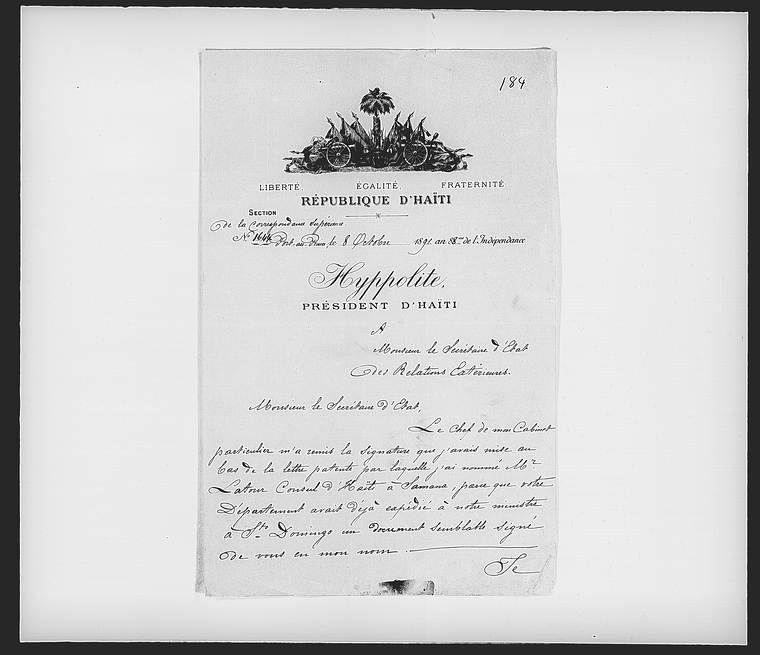 184
LIBERTÉ. ÉGALITÉ. FRATERNITÉ.
RÉPUBLIQUE D'HAÏTI
SECTION
de la Correspondance Supérieure
No 1644 Port-au-Prince, le 8 Octobre 1891. an 88me de l'Indépendance
Hyppolite,
PRÉSIDENT D'HAÏTI
A
Monsieur le Secrétaire d'Etat
des Relations Extérieures.
Monsieur le Secrétaire d'Etat,
Le Chef de mon Cabinet
particulier m'a remis la signature que j'avais mise au
bas de la lettre patente par laquelle j'ai nommé Mr
Latour Consul d'Haïti à Samana, parce que votre
Département avait déjà expédié à notre ministre
à Sto Domingo un document semblable signé
de vous en mon nom.
Je